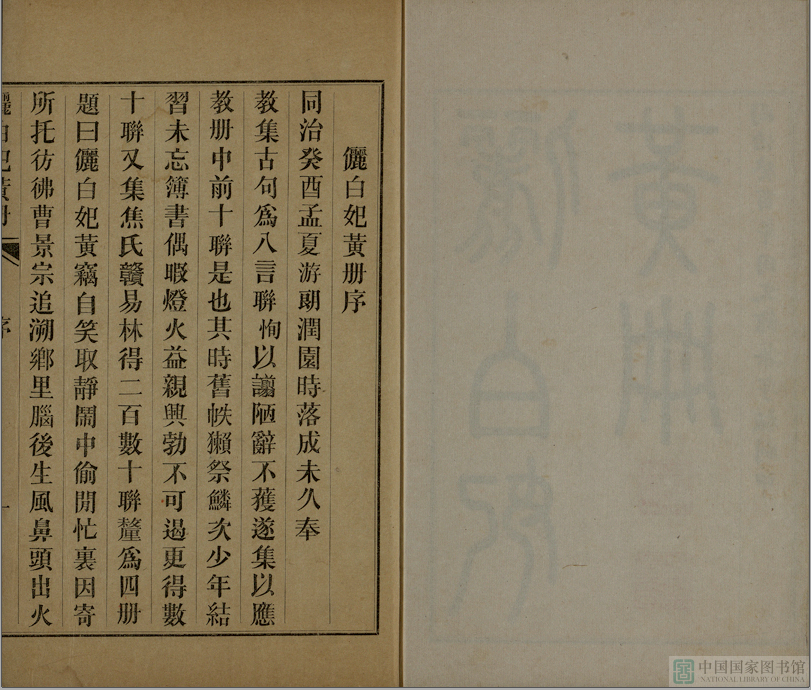 儷白妃黃册序
同治癸酉孟夏游朙潤園時落成未久奉
教集古句爲八言聯恂以譾陋辭不獲遂集以應
教册中前十聯是也其時舊帙獺祭鱗次少年結
習未忘簿書偶暇燈火益親興勃不可遏更得數
十聯又集焦氏贛易林得二百數十聯釐爲四册
題曰儷白妃黃竊自笑取靜鬧中偷閒忙裏因寄
所托彷彿曹景宗追溯鄉里腦後生風鼻頭出火
儷白妃黃册
序
一
中国国家图书馆
NATIONAL LIBRARY OF CHINA